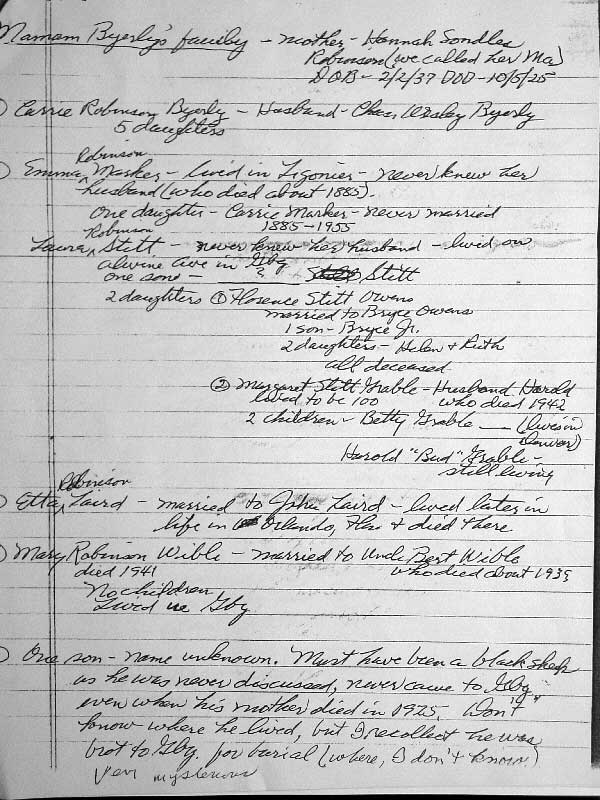 Mamam Byerly's family - mother - Hannah Sondles
Robinson (we called her Ma)
DOB - 2/2/37 DOD - 10/5/25
) Carrie Robinson Byerly - Husband - Chas. Wesley Byerly
5 daughters
Robinson
) Emma ^ Marker - lived in Ligonier - never knew her
husband (who died about 1885).
One daughter - Carrie Marker - never married
1885-1955
Robinson
Laura ^ Stitt - never knew her husband - lived on
Alwine Ave in Gbg
one son - ? Stitt
2 daughters ① Florence Stitt Owens
married to Bryce Owens
1 son - Bryce Jr.
2 daughters - Helen + Ruth
all deceased
② Margaret Stitt Grable - Husband Harold
lived to be 100 who died 1942
2 children - Betty Grable __ (lives in
Denver)
Harold "Bud" Grable -
still living
Robinson
) Etta ^ Laird - married to John Laird - lived later in
life in Orlando, Fla + died there
) Mary Robinson Wible - married to Uncle Bert Wible
died 1941 who died about 1939
No children
Lived in Gbg
) One son - name unknown. Must have been a black sheep
as he was never discussed, never came to Gbg
even when his mother died in 1925. Don't
know where he lived, but I recollect he was
brot to Gbg. for burial (where, I don't know.)
Very mysterious